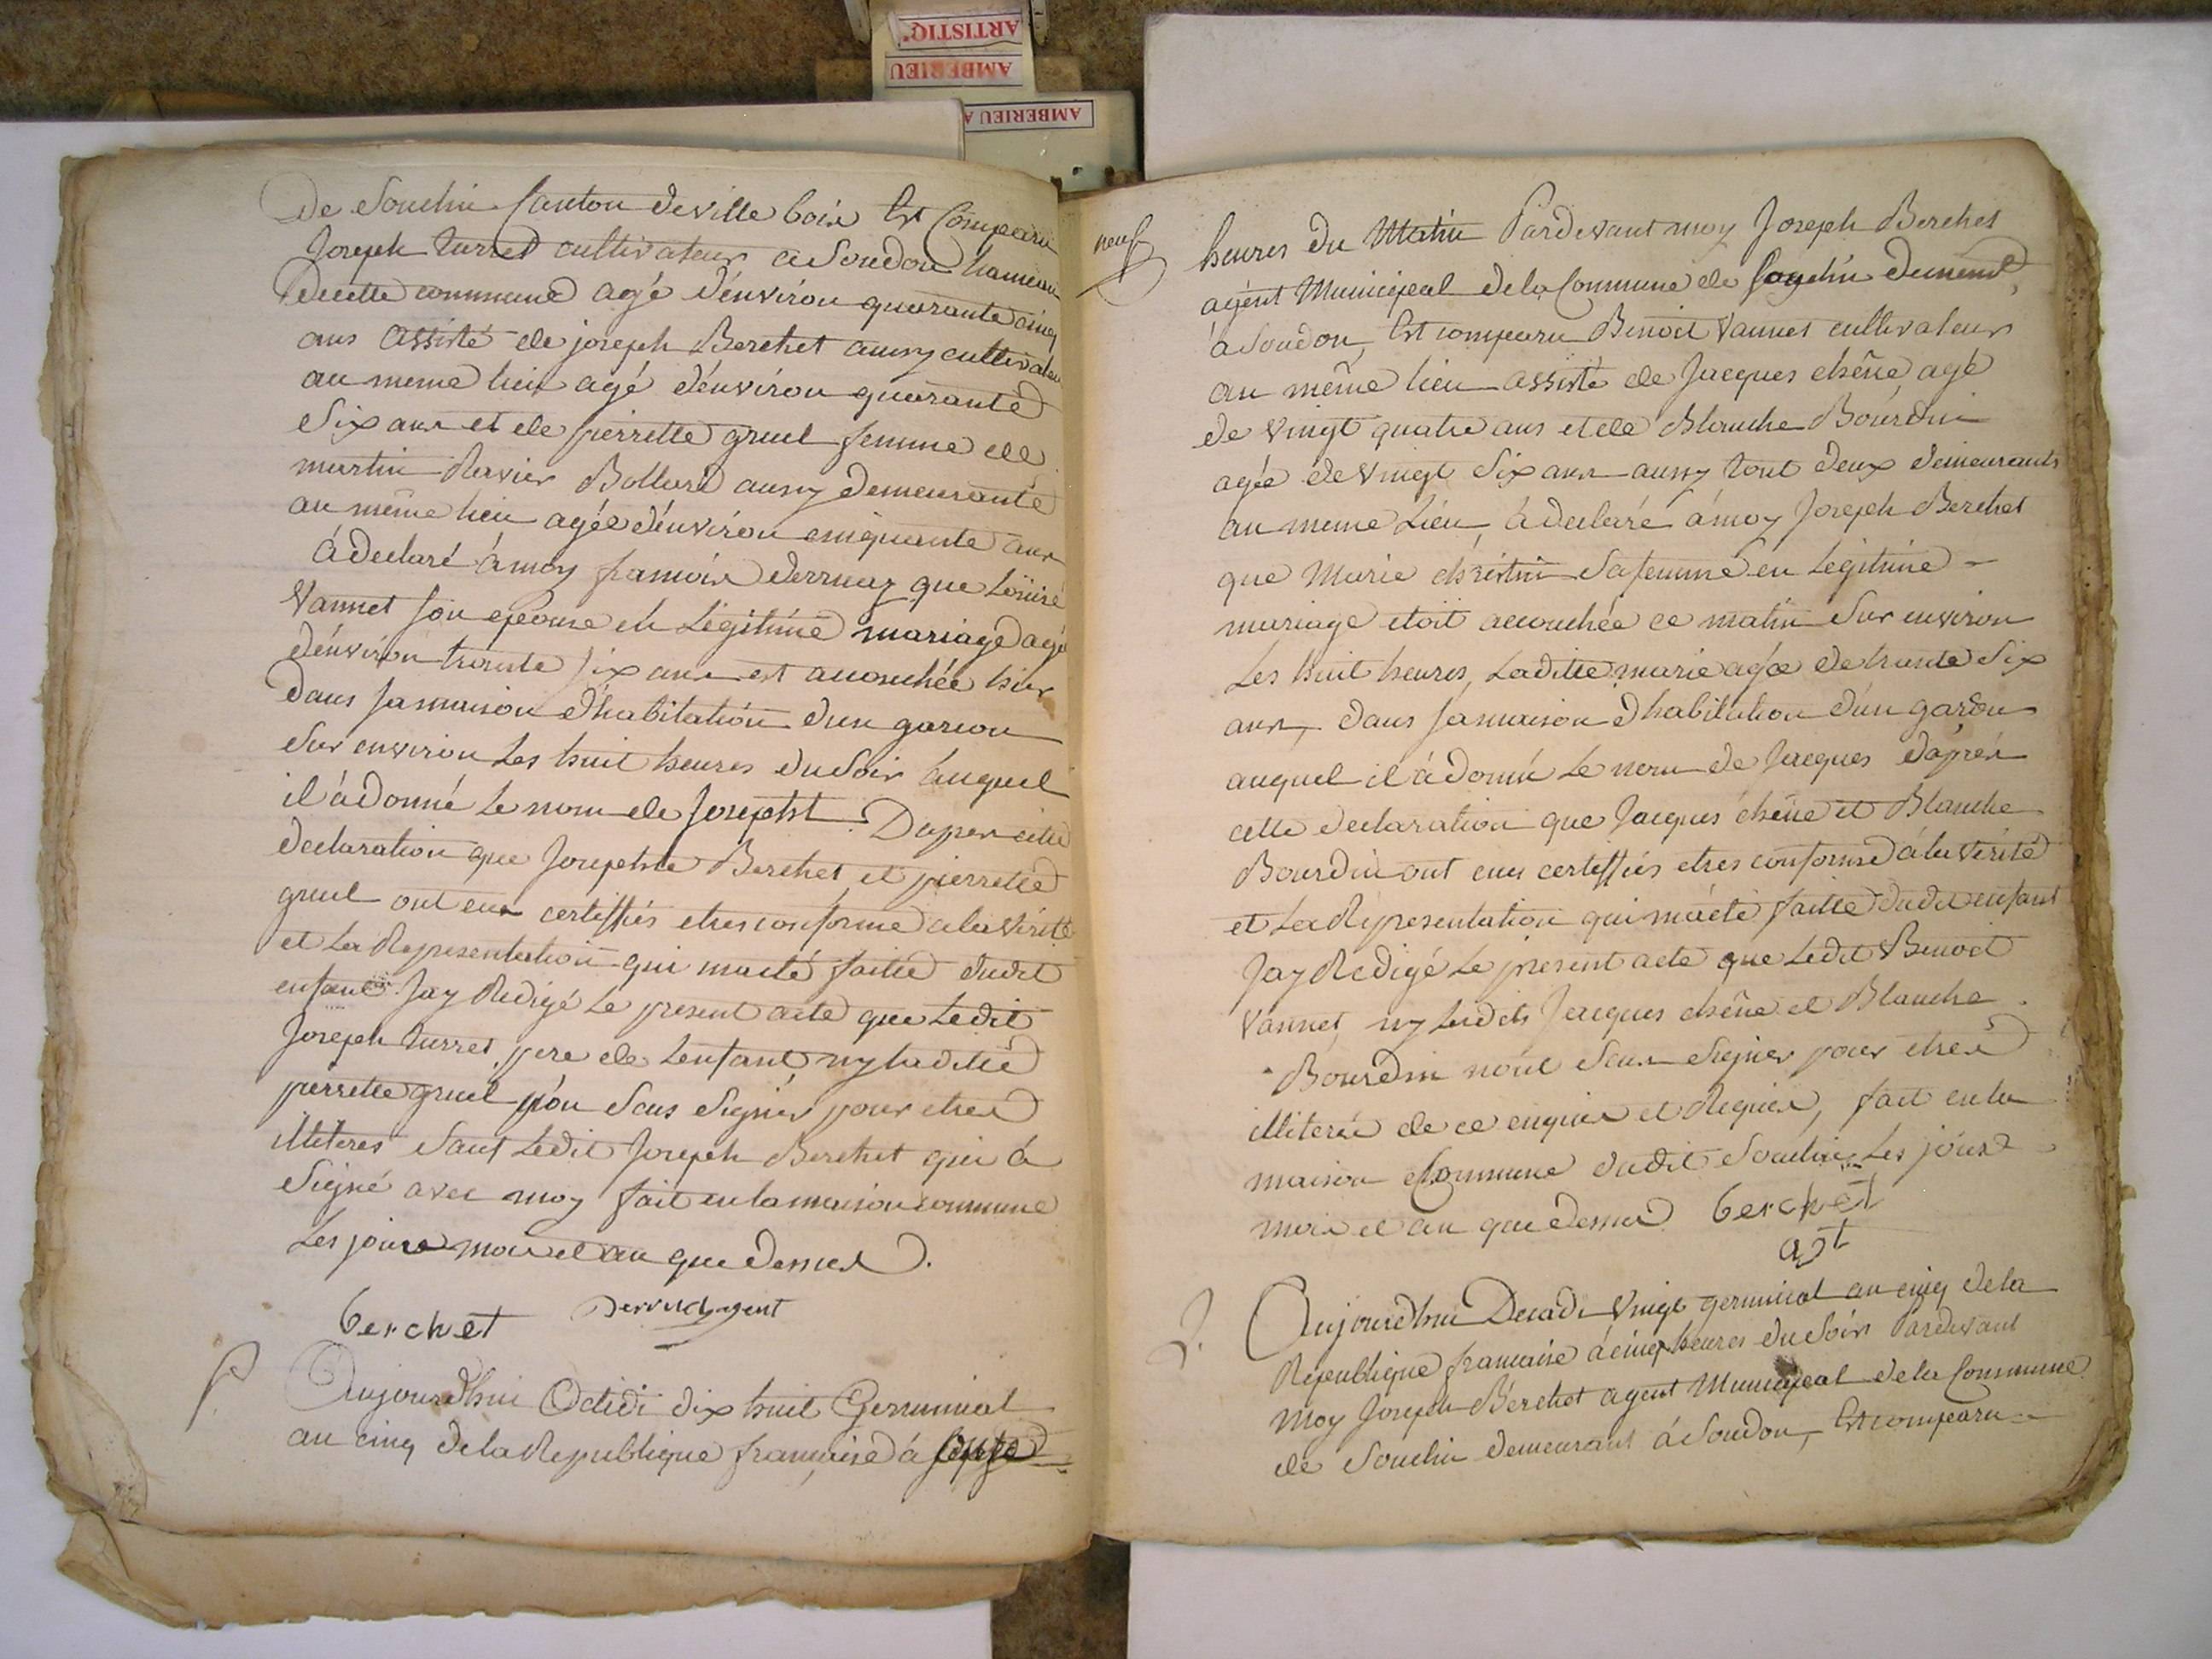 ARTISTIQ'
AMBERIEU
AMBERIEU A
De Souclin Canton de ville bois Est Comparu
Joseph turret cultivateur a Soudon hameau
decette commune agé d'environ quarante cinq
ans assisté de joseph Berchet aussy cultivateu
au meme lieu agé d'environ quarante
Six ans et de pierrette gruel femme de
martin Ravier Bollard aussy demeurante
au même lieu agée d'environ cinquante ans
à declaré à moy francois derruaz que Loüise
Vannet son epouse en Légitime mariage agé
d'environ trente six ans est accouchée hier
dans sa maison d'habitation d'un garcon
Sur environ Les huit heures du Soir auquel
il à donné Le nom de Josepht. Dapres cette
declaration que Josephte Berchet et pierrette
gruel ont eux certiffiés etres conforme a la vérité
et La Representation qui maeté faitte dudit
enfant Jay Redigé Le present acte que Ledit
Joseph turret pere de Lenfant, ny laditte
pierrette gruel n'on Sens Signer pour etres
illiteres Sauf Ledit Joseph Berchet qui à
Signé avec moy fait en la maison commune
Les jours mois et an que dessus.
berchet derruaz agent
P. Aujourdhui Octidi dix huit Germinal
an cinq de la Republique française à
neuf
heures du Matin Pardevant moy Joseph Berchet
agent Municipal de la Commune de Souclin demeurt,
à Soudon, Est comparu Benoit Vannet cultivateur
au même lieu assisté de Jacques chêne agé
de vingt quatre ans et de Blanche Bourdin
agée de vingt Six ans aussy tout deux demeurants
au meme Lieu, à declaré à moy Joseph Berchet
que Marie christin Safemme en Légitime
mariage etoit accouchée ce matin Sur environ
Les huit heures, Laditte marie agée de trente Six
ans, dans Samaison d'habitation d'un garcon
auquel il à donné Le nom de Jacques dapres
cette declaration que Jacques chêne et Blanche
Bourdin ont eux certiffiés etres conforme à la vérité
et La Representation qui màeté faitte dudit enfant
Jay Redigé Le present acte que Ledit Benoit
Vannet, ny Lesdits Jacques chêne et Blanche
Bourdin nont Seus Signer pour etres
illiteré de ce enquis et Requis, fait en la
maison Commune dudit Souclin Les jours
mois et an que dessus berchet
agt
2. Aujourdhui Decadi Vingt germinal an cinq de la
Republique francaise à cinq heures du Soir Pardevant
Moy Joseph Berchet agent Municipal de la Commune
de Souclin demeurant à Soudon, Est comparu